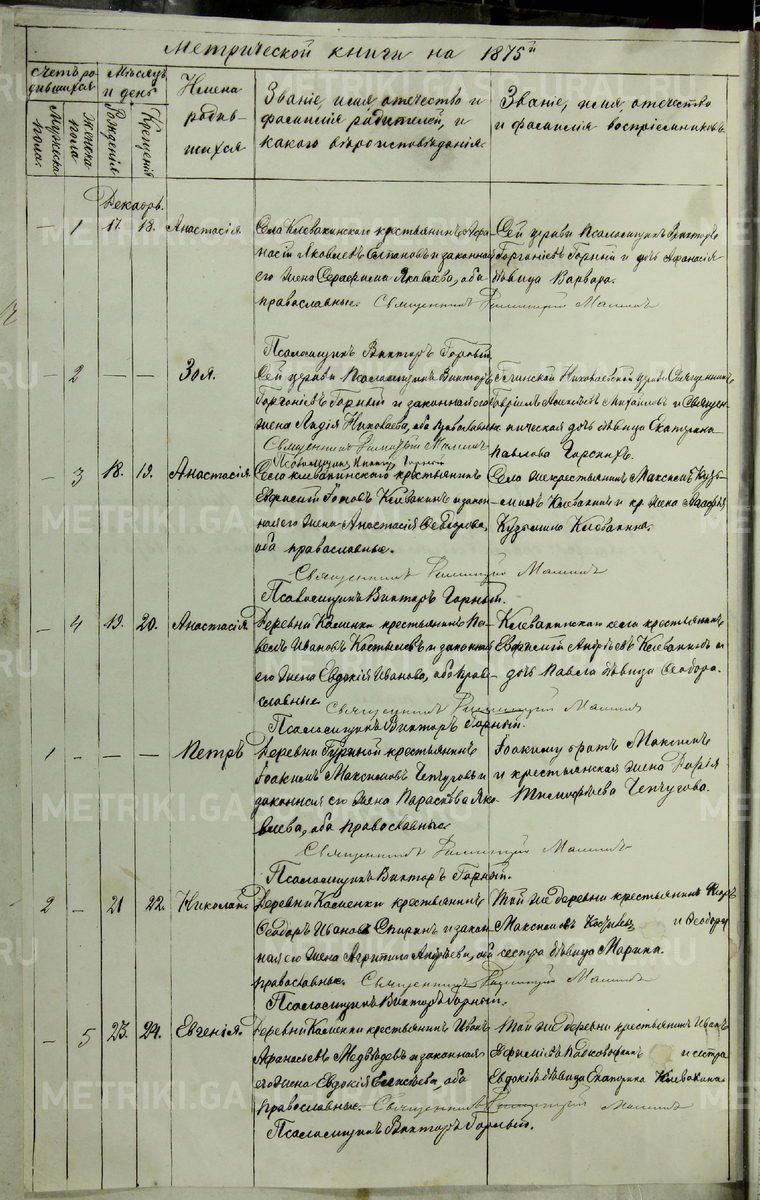 Метрической книги на 1875й
Счетъ ро-
дившихся
Мѣсяцъ
и день
Имена
родив-
шихся
Званіе, имя, отечество и
фамилія родителей, и
какого вѣроисповѣданія.
Званіе, имя, отечество
и фамилія воспріемниковъ
Мужска
пола.
Женска
пола
Рожденія
Крещенія
Декабрь.
— 1 17. 18. Анастасія.
Села Клевакинскаго крестьянинъ Афа-
насій Яковлевъ и законная
его жена Серафима Яковлева, оба
православные. Священникъ Димитрій Маминъ
Псаломщикъ Викторъ Горный
Сей церкви Псаломщикъ Викторъ
Горгоніевъ Горный и дочь Афанасія
дѣвица Варвара.
— 2 — — Зоя.
Сей церкви Псаломщикъ Викторъ
Горгоніевъ Горный и законная его
жена Лидія Николаева, оба православн.
Священникъ Димитрій Маминъ
Псаломщикъ Викторъ Горный
Николаевской церкви Священникъ
Гавріилъ Алексѣевъ Михайловъ и Священ-
ническая дочь дѣвица Екатерина
Павлова
— 3 18. 19. Анастасія
Села Клевакинскаго крестьянинъ
Клевакинъ и закон-
ная его жена Анастасія Ѳедорова,
оба православные.
Священникъ Димитрій Маминъ
Псаломщикъ Викторъ Горный.
Села же крестьянинъ Максимъ Кузь-
минъ Клевакинъ и кр. жена Агафія
Кузьмина Клевакина.
— 4 19. 20. Анастасія
Деревни Каменки крестьянинъ Па-
велъ Ивановъ Костылевъ и законная
его жена Евдокія Иванова, оба Право-
славные. Священникъ Димитрій Маминъ
Псаломщикъ Викторъ Горный.
Клевакинскаго села крестьянинъ
Евфимій Андреевъ Клевакинъ и
дочь Павла дѣвица Ѳеодора.
1 — — — Петръ
Деревни крестьянинъ
Іоакимъ Максимовъ Чепчуговъ и
законная его жена Параскева Яко-
влева, оба православные.
Священникъ Димитрій Маминъ
Псаломщикъ Викторъ Горный.
Іоакиму братъ Максимъ
и крестьянская жена
Тимофѣева Чепчугова.
2 — 21 22. Николай.
Деревни Каменки крестьянинъ
Ѳеодоръ Ивановъ Спиринъ и закон-
ная его жена Андреева, оба
православные. Священникъ Димитрій Маминъ
Псаломщикъ Викторъ Горный.
Той же деревни крестьянинъ
Максимовъ и Ѳеодора
сестра дѣвица Марина.
— 5 23. 24. Евгенія.
Деревни Каменки крестьянинъ Иванъ
Афанасьевъ Медвѣдевъ и законная
его жена Евдокія оба
православные. Священникъ Димитрій Маминъ
Псаломщикъ Викторъ Горный.
Той же деревни крестьянинъ Иванъ
и сестра
Евдокіи дѣвица Екатерина Клевакина.
METRIKI.GA